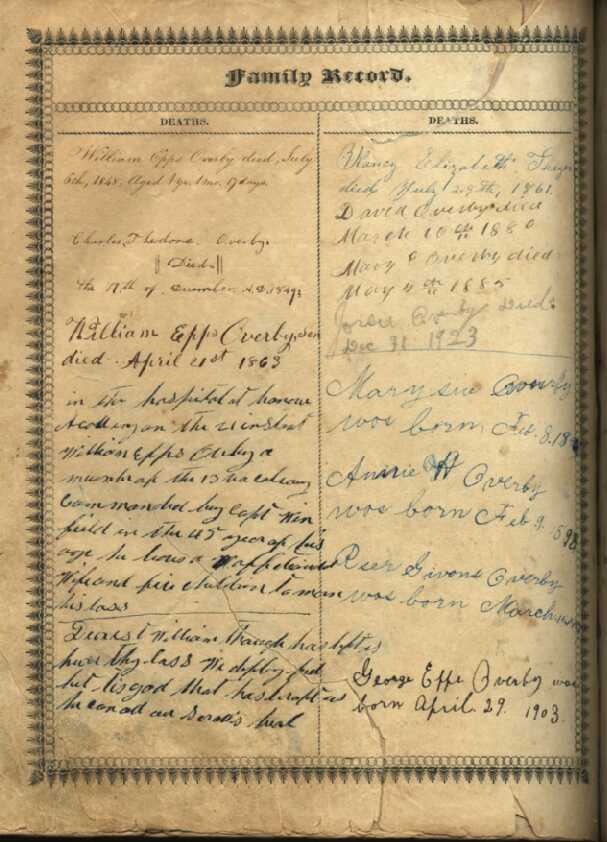 Family Record.
DEATHS.
William Epps Overby died, July
6th, 1848, Aged 1 yr. 1 mo. 17 days.
Charles Theodore Overby
Died
the 17th of December A.D. 1849
William Epps Overby Sen
died April 21st 1863
in the hospital at
on the 21 instant
William Epps Overby a
member of the 13 va
commanded by Capt Win
field in the 45 year of his
age he leaves a
Wife and five children to mourn
his loss
Dearest William though has left us
here thy loss We deeply feel
but tis god that has
he can all our Sorrows heal
DEATHS.
Nancy Elizabeth
died July 29th, 1861
David Overby died
March 10th 188
Mary Overby died
May 4th 1885
Overby Died
Dec 31 1923
Mary sue Overby
was born Feb. 8, 18
Annie H Overby
was born Feb 9
Givens Overby
was born March
George Epps Overby was
born April 29 1903.